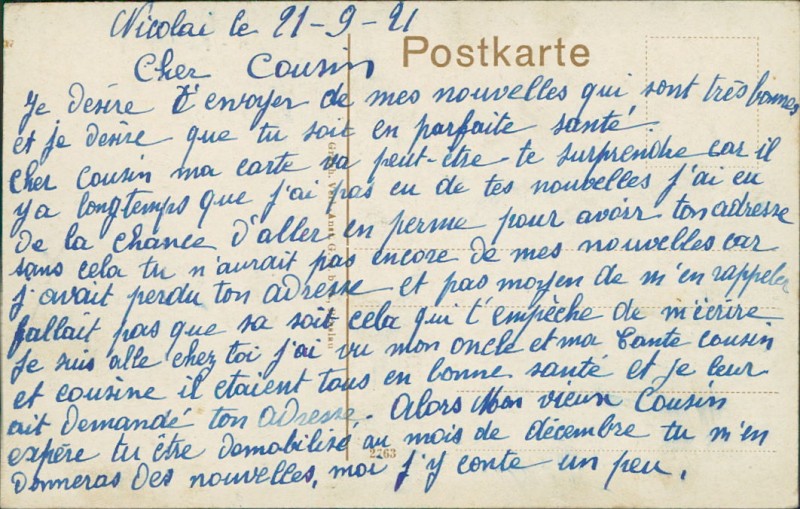 Nicolai le 21-9-21
Postkarte
Cher Cousin
Je désire t'envoyer de mes nouvelles qui sont très bonnes
et je désire que tu soit en parfaite santé.
Cher Cousin ma carte va peut-être te surprendre car il
y a longtemps que j'ai pas eu de tes nouvelles j'ai eu
de la chance d'aller en perme pour avoir ton adresse
sans cela tu n'aurait pas encore de mes nouvelles car
j'avait perdu ton adresse et pas moyen de m'en rappeler
fallait pas que sa soit cela qui t'empèche de m'écrire
Je suis allé chez toi j'ai vu mon oncle et ma tante cousin
et cousine il etaient tous en bonne santé et je leur
ait demandé ton adresse. Alors Mon vieux Cousin
expère tu être demobilisé au mois de décembre tu m'en
donneras des nouvelles, moi j'y conte un peu.
2763